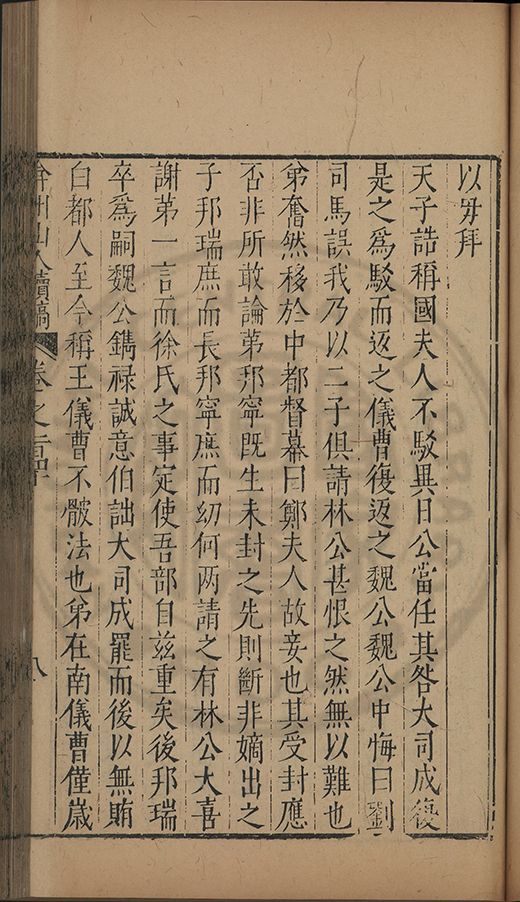 以毋拜
天子誥稱國夫人不駁異日公當任其咎大司成復
是之為駁而返之儀曹復返之魏公魏公中悔曰劉
司馬誤我乃以二子俱請林公甚恨之然無以難也
弟奮然移於中都督幕曰鄭夫人故妾也其受封應
否非所敢論第邦寧既生未封之先則斷非嫡出之
子邦瑞庶而長邦寧庶而幼何两請之有林公大喜
謝第一言而徐氏之事定使吾部自茲重矣後邦瑞
卒為嗣魏公鐫祿誠意伯詘大司成罷而後以無賄
白都人至今稱王儀曹不骳法也弟在南儀曹僅歲
弇州山人續稿 卷之一百四十 八